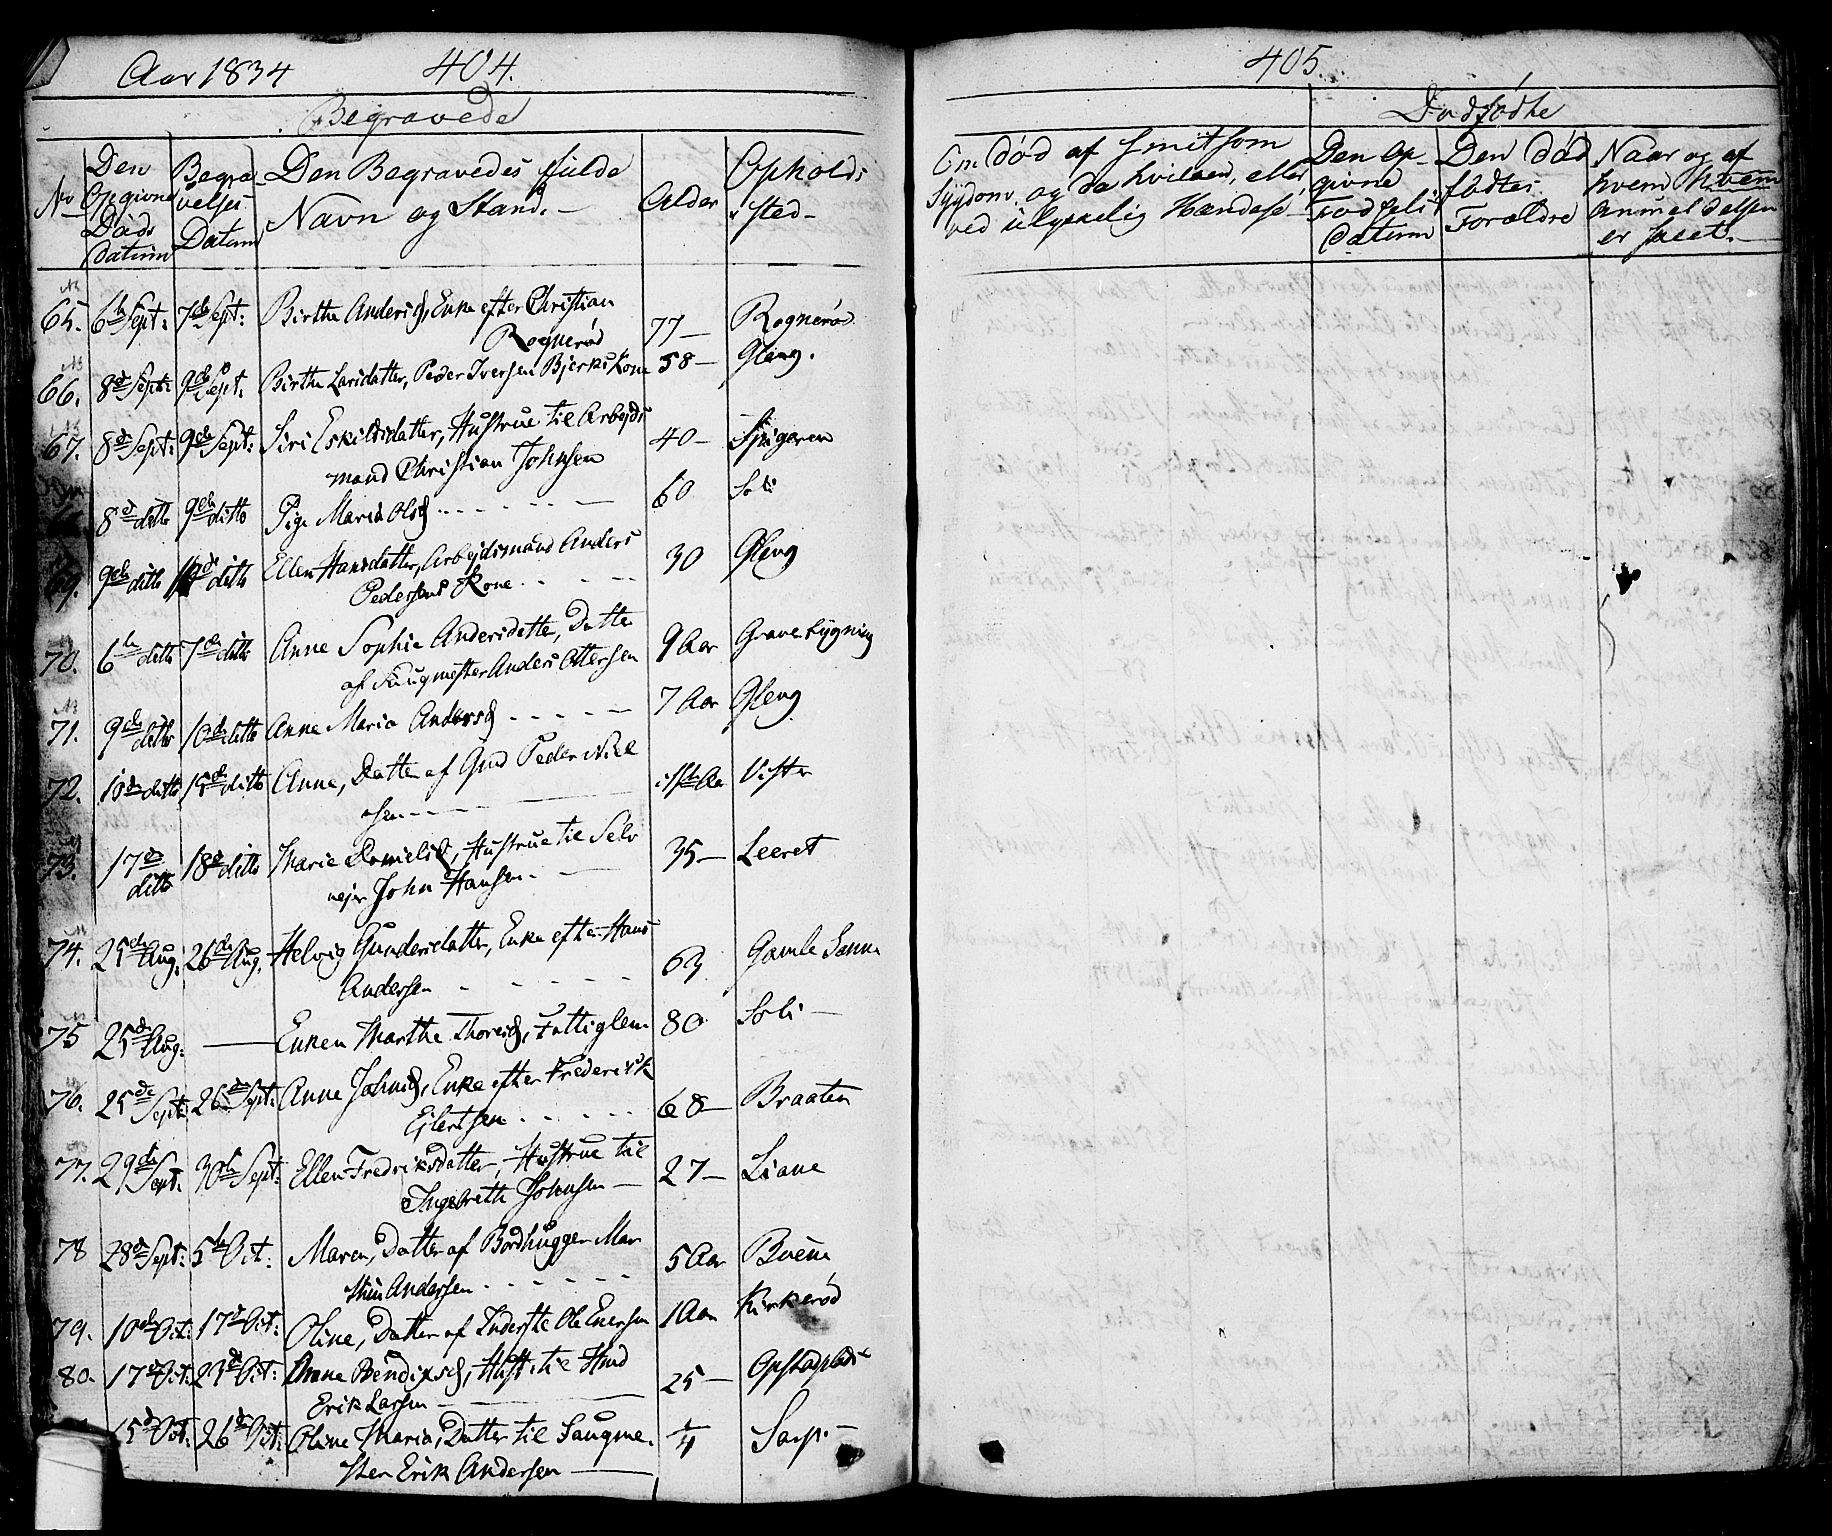 Aar 1834 404.
Begravede
No
Den Opgivne Døds Datum
Begravelses Datum
Den Begravedes fulde Navn og Stand. —
Alder
Opholds sted —
65. 6te Sept: 7de Sept: Birthe Andersd, Enke efter Christian
Rognerød 77 — Rognerød
66. 8de Sept: 9de Sept. Birthe Larsdatter, Peder Iversen Bjerks Kone 58 — Gleng.
67. 8de Sept: 9de Sept: Siri Eskildsdatter, Hustrue til Arbejds
mand Christian Johnsen 40 — Spigeren
8de ditto 9de ditto Pige Maria Olsd 60 Soli
69. 9de ditto ditto Ellen Hansdatter, Arbejdsmand Anders
Pedersens Kone 30 Gleng
70. 6te ditto 7de ditto Anne Sophie Andersdatter, Datter
af Saugmester Anders Ottersen 9 Aar Gravebygning
71. 9de ditto 10de ditto Anne Maria Andersd 7 Aar Gleng
72. 10de ditto 15de ditto Anne, Datter af Gmd Peder Niel
sen Vister
73. 17de ditto 18de ditto Marie Danielsd, Hustrue til Selv
ejer John Hansen 35 — Leeret
74. 25de Aug. 26de Aug. Helvig Gundersdatter, Enke efter Hans
Andersen 63 Gamle Sanne
75 25de Aug: — Enken Marthe Thoresd, Fattiglem 80 Soli —
76. 25de Sept: 26de Sept: Anne Johnsd, Enke efter Frederik
Ejlertsen 68 — Braaten
77. 29de Sept. 30te Sept: Ellen Fredriksdatter, Hustrue til
Ingebreth Johnsen — 27 — Liane
78 28de Sept: 5te Oct: Maren, Datter af Bordhugger Mar
thin Andersen 5 Aar Bøene
79. 10de Oct: 17de Oct: Oline, Datter af Inderste Ole Enersen 1 Aar Kirkerød
80. 17de Oct: 23de Oct: Anne Bendixsd, Hust: til Hmd
Erik Larsen — 25 — Opstadplads
15de Oct: 26de Oct: Oline Maria, Datter til Saugme-
ster Erik Andersen — 1/4 Sarp. —
405.
Dødfødte
Om død af smitsom Sygdom og da hvilken, eller ved ulykkelig Hændelse —
Den Opgivne Fødsels Datum
Den død fødtes Forældre
Naar og af hvem hvem Anmeldelsen er skeet. —